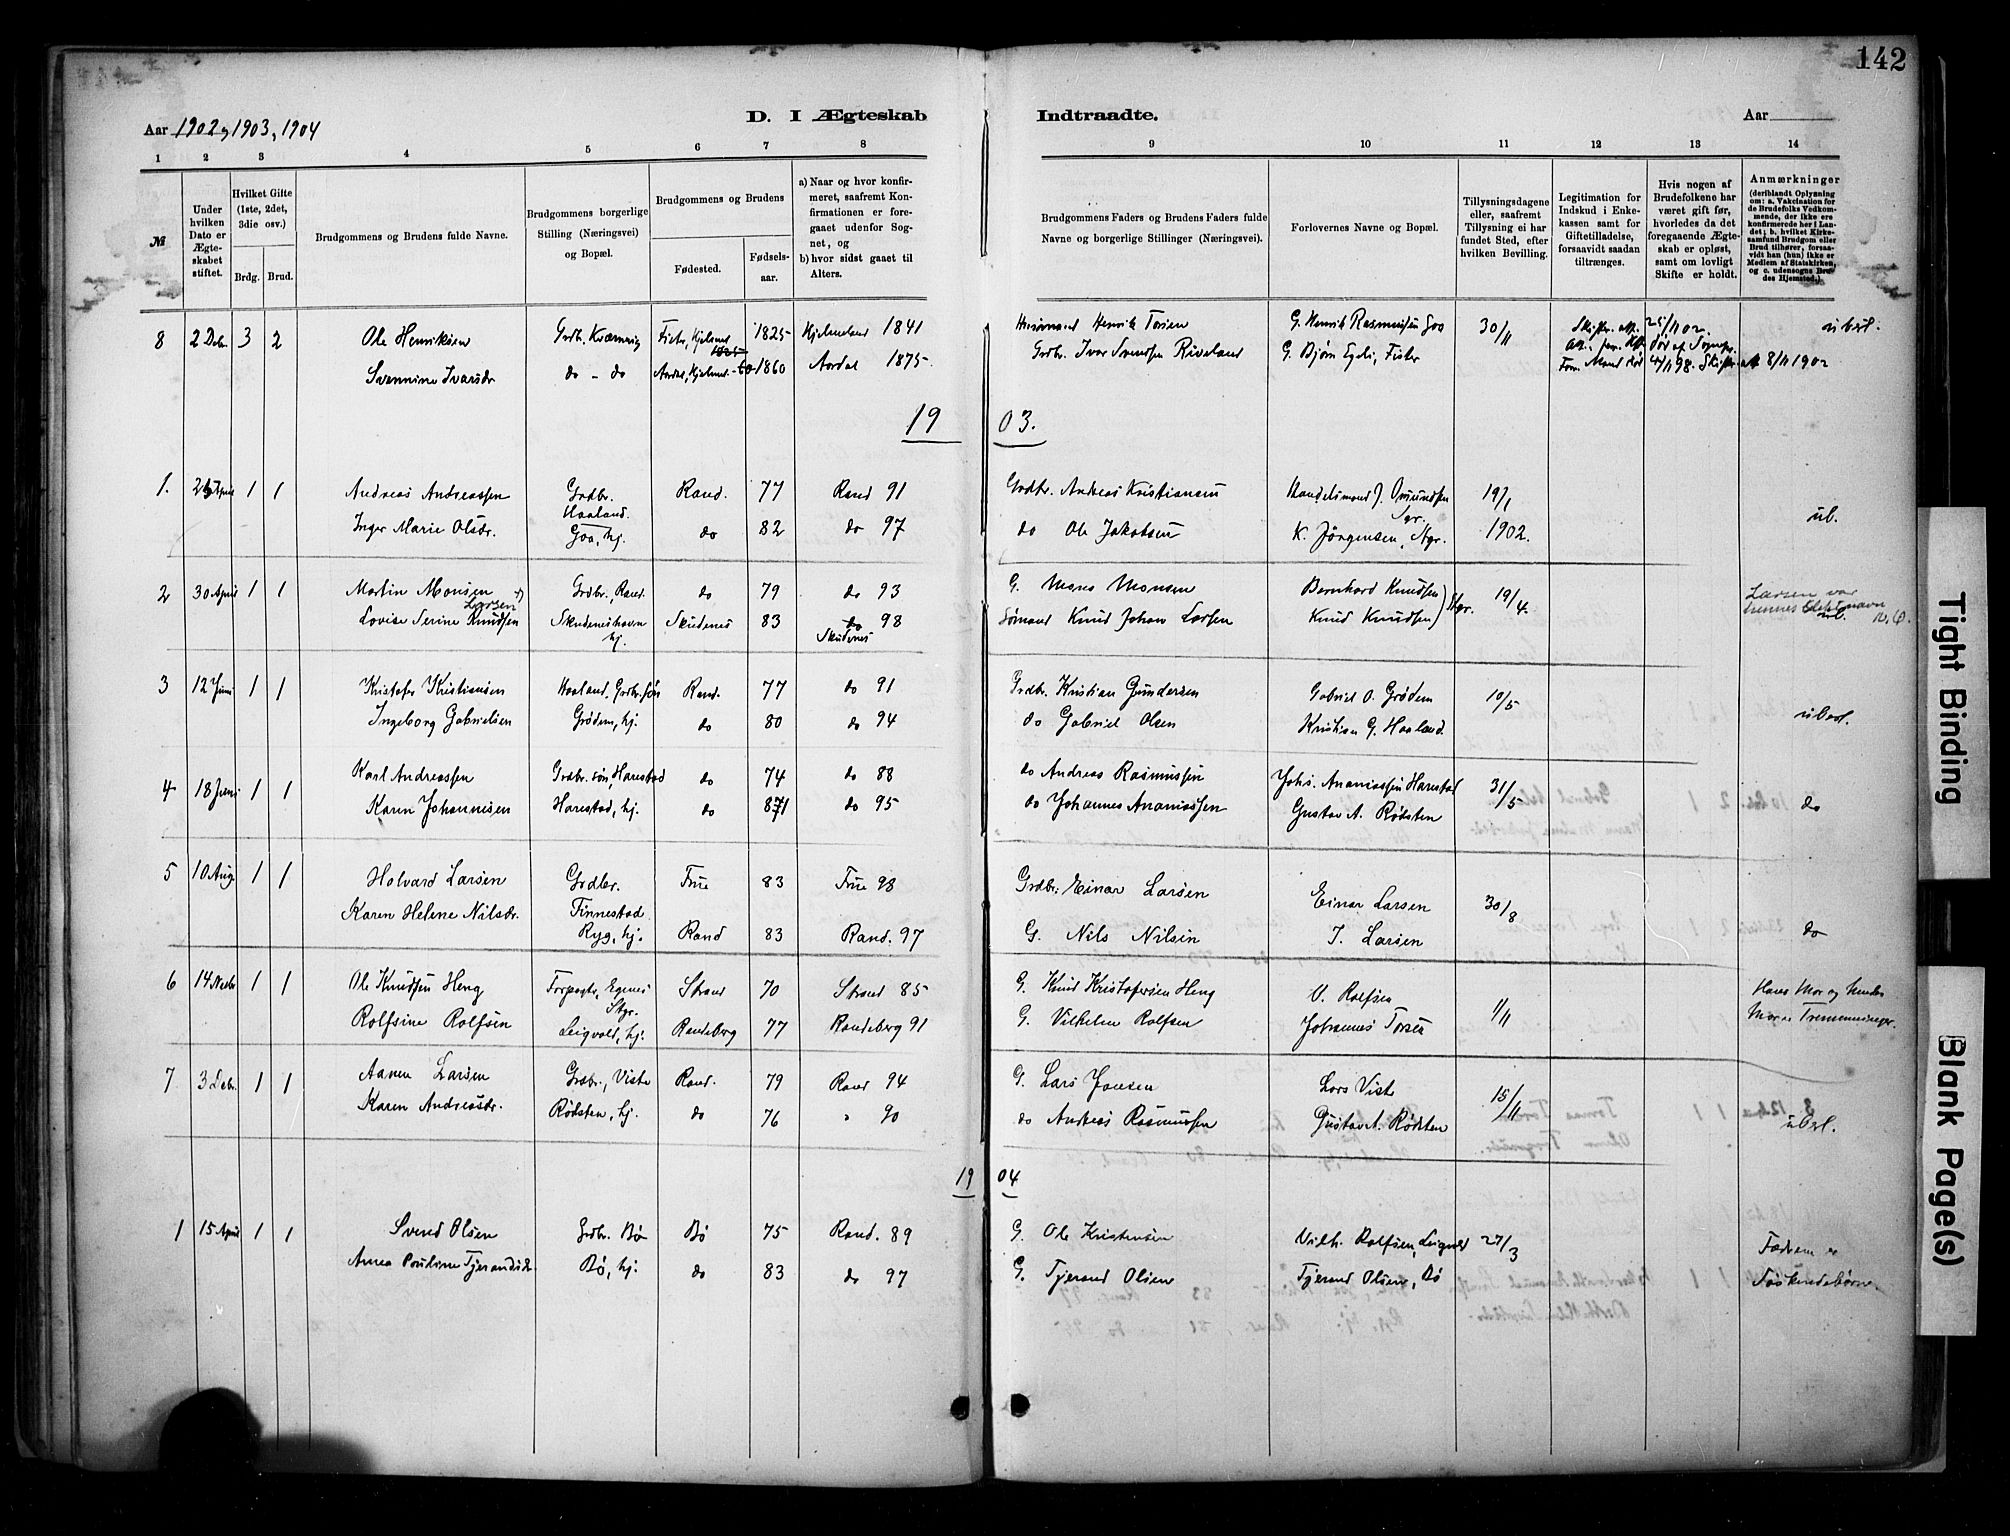 142
Aar 1902, 1903, 1904
D. I Ægteskab Indtraadte.
Aar
1 2 3 4 5 6 7 8 9 10 11 12 13 14
№
Under hvilken Dato er Ægteskabet stiftet.
Hvilket Gifte (1ste, 2det, 3die osv.)
Brdg. Brud.
Brudgommens og Brudens fulde Navne.
Brudgommens borgerlige Stilling (Næringsvei) og Bopæl.
Brudgommens og Brudens
Fødested. Fødselsaar.
a) Naar og hvor konfirmeret, saafremt Konfirmationen er foregaaet udenfor Sognet, og
b) hvor sidst gaaet til Alters.
Brudgommens Faders og Brudens Faders fulde Navne og borgerlige Stillinger (Næringsvei).
Forlovernes Navne og Bopæl.
Tillysningsdagene eller, saafremt Tillysning ei har fundet Sted, efter hvilken Bevilling.
Legitimation for Indskud i Enkekassen samt for Giftetilladelse, forsaavidt saadan tiltrænges.
Hvis nogen af Brudefolkene har været gift før, hvorledes da det foregaaende Ægteskab er opløst, samt om lovligt Skifte er holdt.
Anmærkninger (deriblandt Oplysning om: a. Vakcination for de Brudefolks Vedkommende, der ikke ere konfirmerede her i Landet; b. hvilket Kirkesamfund Brudgom eller Brud tilhører, forsaavidt han (hun) ikke er Medlem af Statskirken, og c. udensogns Brudes Hjemsted.)
8 2 Debr. 3 2 Ole Henriksen Grdb. Fister, Hjelmel. 1825 Hjelmeland 1841 Husmand Henrik Torsen G. Henrik Rasmussen Goa 30/11 25/11 02. ubesl.
Svennine Ivarsdr do - do Aardal, Hjelmel. 1860 Aardal 1875. Grdbr. Ivar Svendsen Riveland G. Bjørn Egli, Fister 8/11 1902
1903.
1. April 1 1 Andreas Andreassen Grdbr. Haaland. Rand. 77 Rand 91 Grdbr. Andreas Kristiansen Handelsmand J. Omundsen 19/1
Inger Marie Olsdr. Goa, hj. do 82 do 97 do Ole Jakobsen K. Jørgensen, 1902. ub.
2 30 April 1 1 Martin Monsen Grdbr., Rand. do 79 do 93 G. Mons Monsen Bernhard Knudsen 19/4 Larsen var
Lovise Serine Knudsen Larsen Skudeneshavn hj. Skudenes 83 do 98 Skudenes Sømand Knud Johan Larsen Knud Knudsen
3 12 Juni 1 1 Kristofer Kristiansen Haaland, Grdbr. søn Rand. 77 do 91 Grdbr. Kristian Gundersen Gabriel O. Grødem 10/5
Ingeborg Gabrielsen Grødem, hj. do 80 do 94 do Gabriel Olsen Kristian G. Haaland ubesl.
4 18 Juni 1 1 Karl Andreassen Grdbr. søn, Harestad do 74 do 88 do Andreas Rasmussen Johs. Ananiassen Harestad 31/5
Karen Johannesen Harestad, hj. do 81 do 95 do Johannes Ananiassen Gustav A. Rødsten do
5 10 Aug. 1 1 Halvard Larsen Grdbr. Finnestad Frue 83 Frue 98 Grdbr. Einar Larsen Einar Larsen 30/8
Karen Helene Nilsdr. Ryg, hj. Rand 83 Rand. 97 G. Nils Nilsen I. Larsen do
6 14 Novbr 1 1 Ole Knudsen Heng Forpagter, Egenes Stgr. Strand 70 Strand 85 G. Knud Kristofersen Heng V. Rolfsen 1/11 Hans Mor og hendes
Rolfsine Rolfsen Leigvold, hj. Randeberg 77 Randeberg 91 G. Vilhelm Rolfsen Johannes Torsen Mor er Tremenninger.
7 3 Debr. 1 1 Aanen Larsen Grdbr., Viste Rand. 79 Rand 94 G. Lars Jonsen Lars Viste 15/11
Karen Andreasdr. Rødsten, hj. do 76 " 90 do Andreas Rasmussen Gustav A. Rødsten ubesl.
1904
1 15 April 1 1 Svend Olsen Grdbr. Bø Bø 75 Rand. 89 G. Ole Kristensen Vilh. Rolfsen, Leigvold 27/3 Fædrene er
Anna Pauline Tjerandsdr. Bø, hj. do 83 do 97 G. Tjerand Olsen Tjerand Olsen, Bø Søskendebørn.
Tight Binding
Blank Page(s)